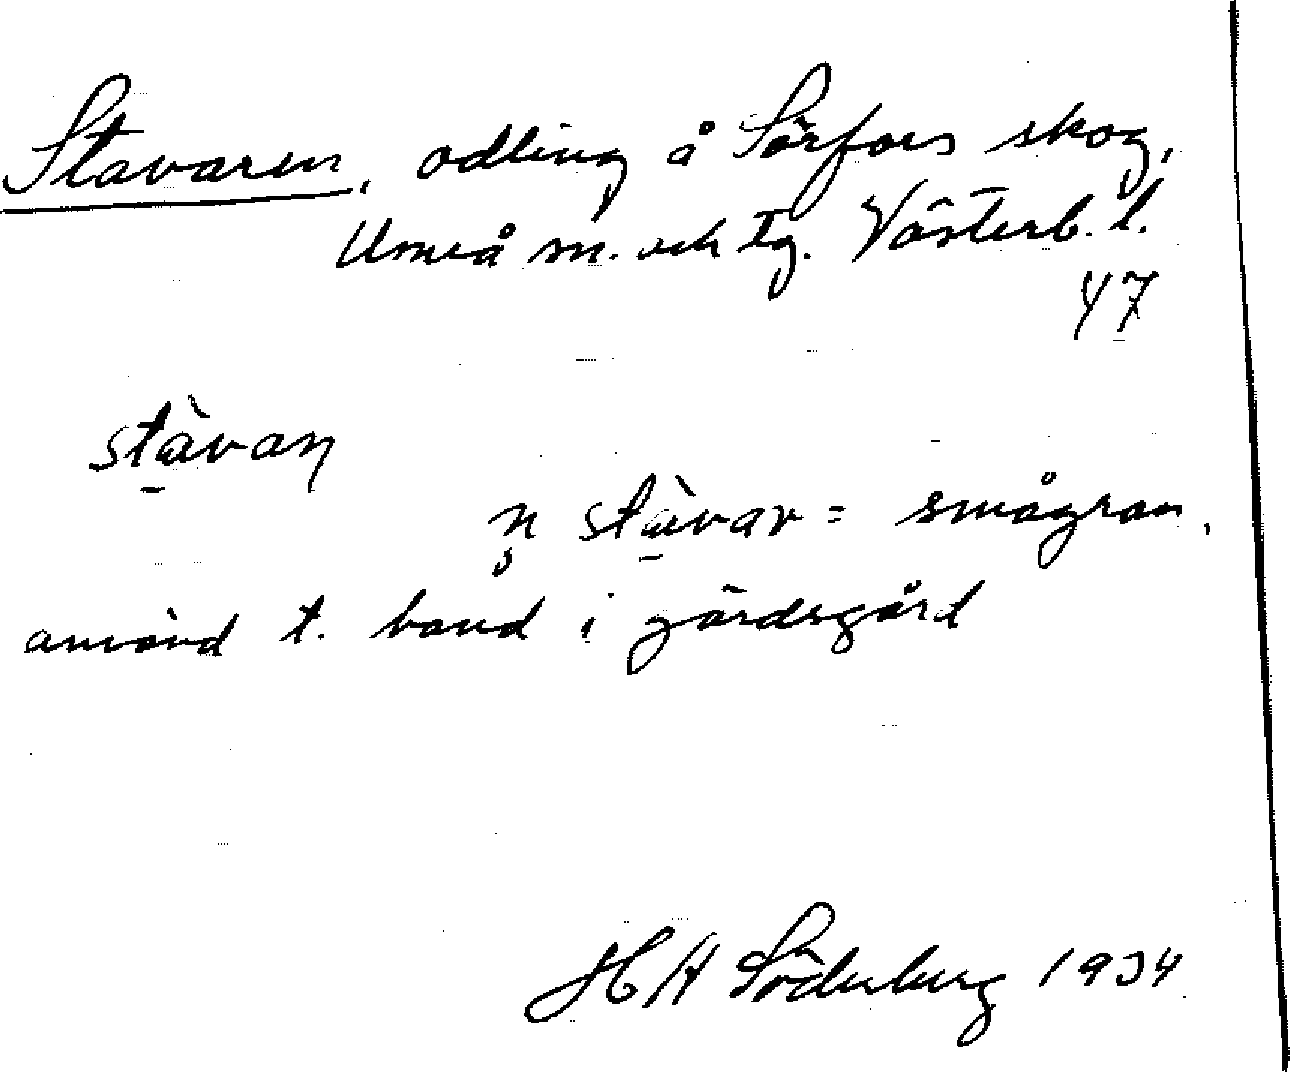 Stavaren, odling å Sörfors skog,
Umeå sn. och tg. Västerb. l.
47
stàvaṇ
n̥ stàvar = smågran,
använd t. band i gärdsgård
H A Söderberg 1934